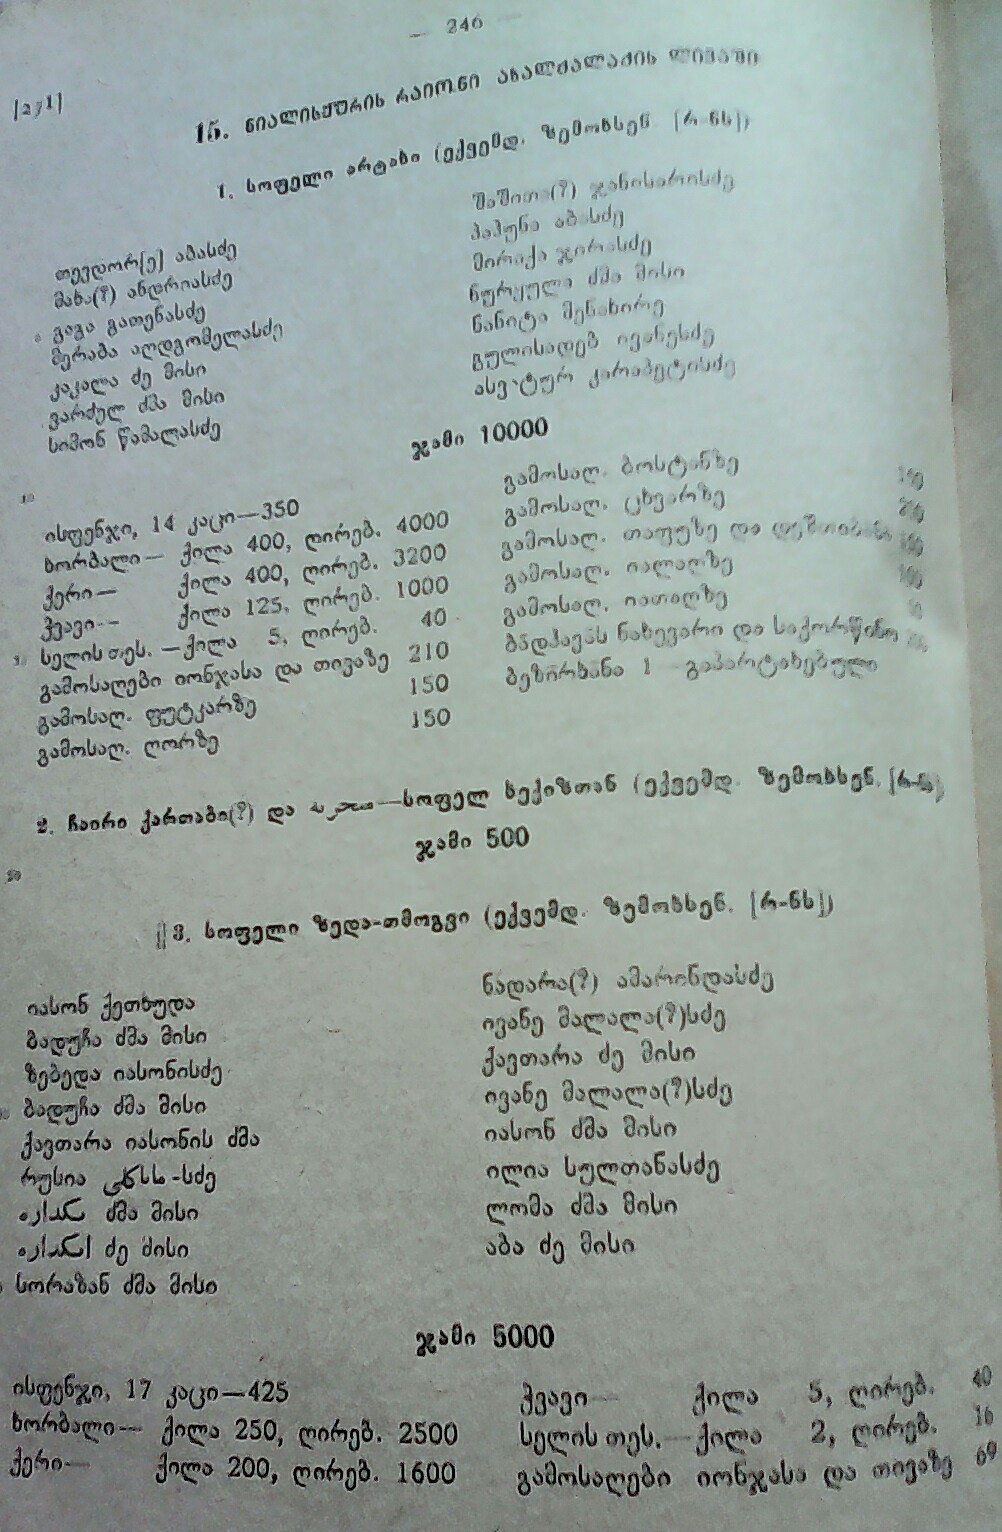 — 246 —
|271|
15. ნიალისყურის რაიონი ახალქალაქის ლივაში
1. სოფელი არტახი (ექვემდ. ზემოხსენ. [რ-ნს])
თევდორ[ე] აბასძე
მახა(?) ანდრიასძე
გოგა გათენასძე
მერაბა აღდგომელასძე
კაკალა ძე მისი
ვარძელ ძმა მისი
სიმონ წამალასძე
შაშითა(?) ჯანისარისძე
პაპუნა აბასძე
მირაქა ჯირასძე
ნურყულა ძმა მისი
ნანიტა მენახირე
გულისადებ ივანესძე
კარაპეტისძე
ჯამი 10000
10
ისფენჯი, 14 კაცი—350
ხორბალი— ქილა 400, ღირებ. 4000
ქერი— ქილა 400, ღირებ. 3200
ჭვავი— ქილა 125, ღირებ. 1000
სელის თეს. —ქილა 5, ღირებ. 40
გამოსაღები იონჯასა და თივაზე 210
გამოსაღ. ფუტკარზე 150
გამოსაღ. ღორზე 150
გამოსაღ. ბოსტანზე
გამოსაღ. ცხვარზე
გამოსაღ. თაფუზე და
გამოსაღ. იალაღზე
გამოსაღ. იათაღზე
ბადჰავას ნახევარი და საქორწინო
ბეზირხანა 1 გაპარტახებული
2. ჩაირი ქართაბი(?) და —სოფელ ხექიზთან (ექვემდ. ზემოხსენ. [რ-ნს])
ჯამი 500
20
||3. სოფელი ზედა-თმოგვი (ექვემდ. ზემოხსენ. [რ-ნს])
იასონ ქეთხუდა
ბადუჩა ძმა მისი
ზებედა იასონისძე
ბადუჩა ძმა მისი
ქავთარა იასონის ძმა
რუსია -სძე
ძმა მისი
ძე მისი
სორაზან ძმა მისი
ნადარა(?) ამარინდასძე
ივანე მალალა(?)სძე
ქავთარა ძე მისი
ივანე მალალა(?)სძე
იასონ ძმა მისი
ილია სულთანასძე
ლომა ძმა მისი
აბა ძე მისი
ჯამი 5000
ისფენჯი, 17 კაცი—425
ხორბალი— ქილა 250, ღირებ. 2500
ქერი— ქილა 200, ღირებ. 1600
ჭვავი— ქილა 5, ღირებ. 40
სელის თეს.—ქილა 2, ღირებ. 16
გამოსაღები იონჯასა და თივაზე 69